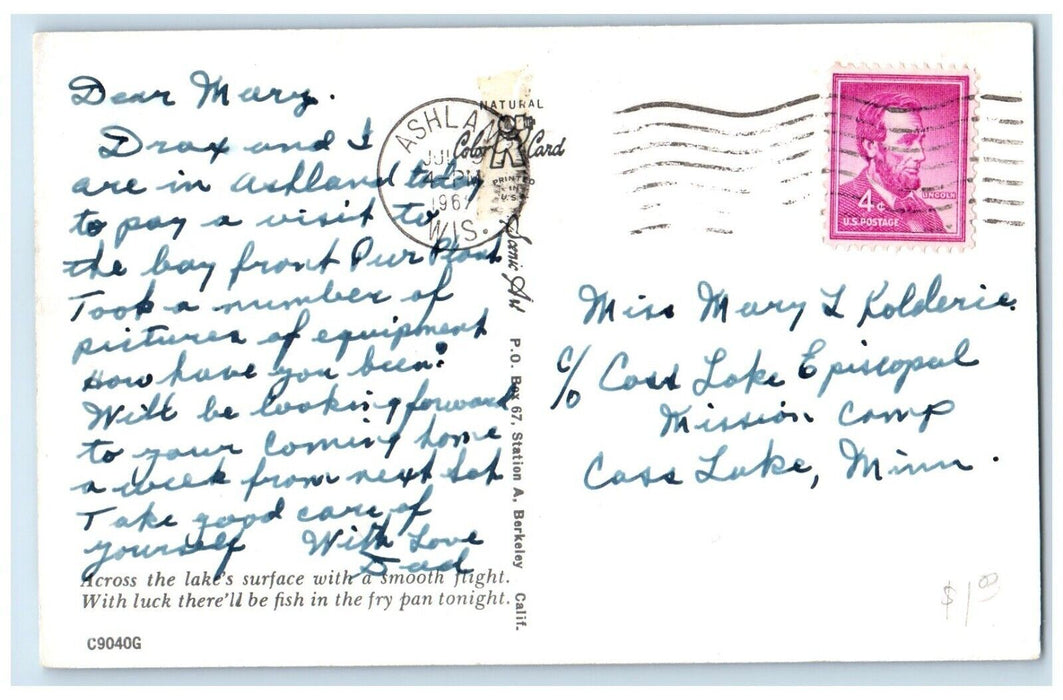 Dear Mary.
Drax and I
are in Ashland today
to pay a visit to
the bay front Pur Plant
Took a number of
pictures of equipment
How have you been?
Will be looking forward
to your coming home
a week from next Sat
Take good care of
yourself With Love
Dad
Across the lake's surface with a smooth flight.
With luck there'll be fish in the fry pan tonight.
C9040G
ASHLAND
JUL
4 PM
196
WIS.
NATURAL
Color Card
PRINTED
IN
U.S.
Scenic Art P.O. Box 67, Station A, Berkeley Calif.
LINCOLN
4¢
U.S. POSTAGE
Miss Mary L Kolderie
c/o Cass Lake Episcopal
Mission Camp
Cass Lake, Minn.
$1.00